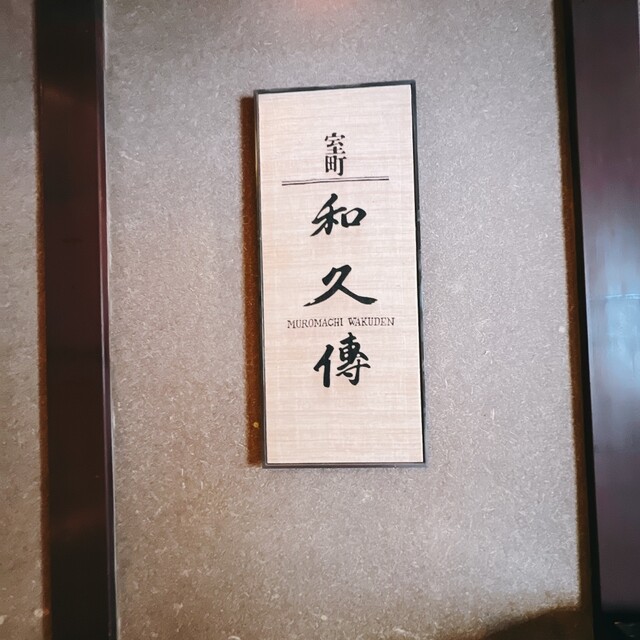 室町
和久傳
MUROMACHI WAKUDEN